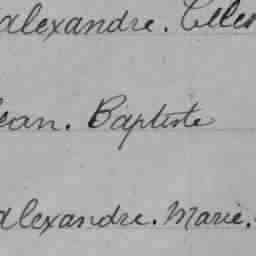 alexandre.
Jean. Baptiste
alexandre. Marie.